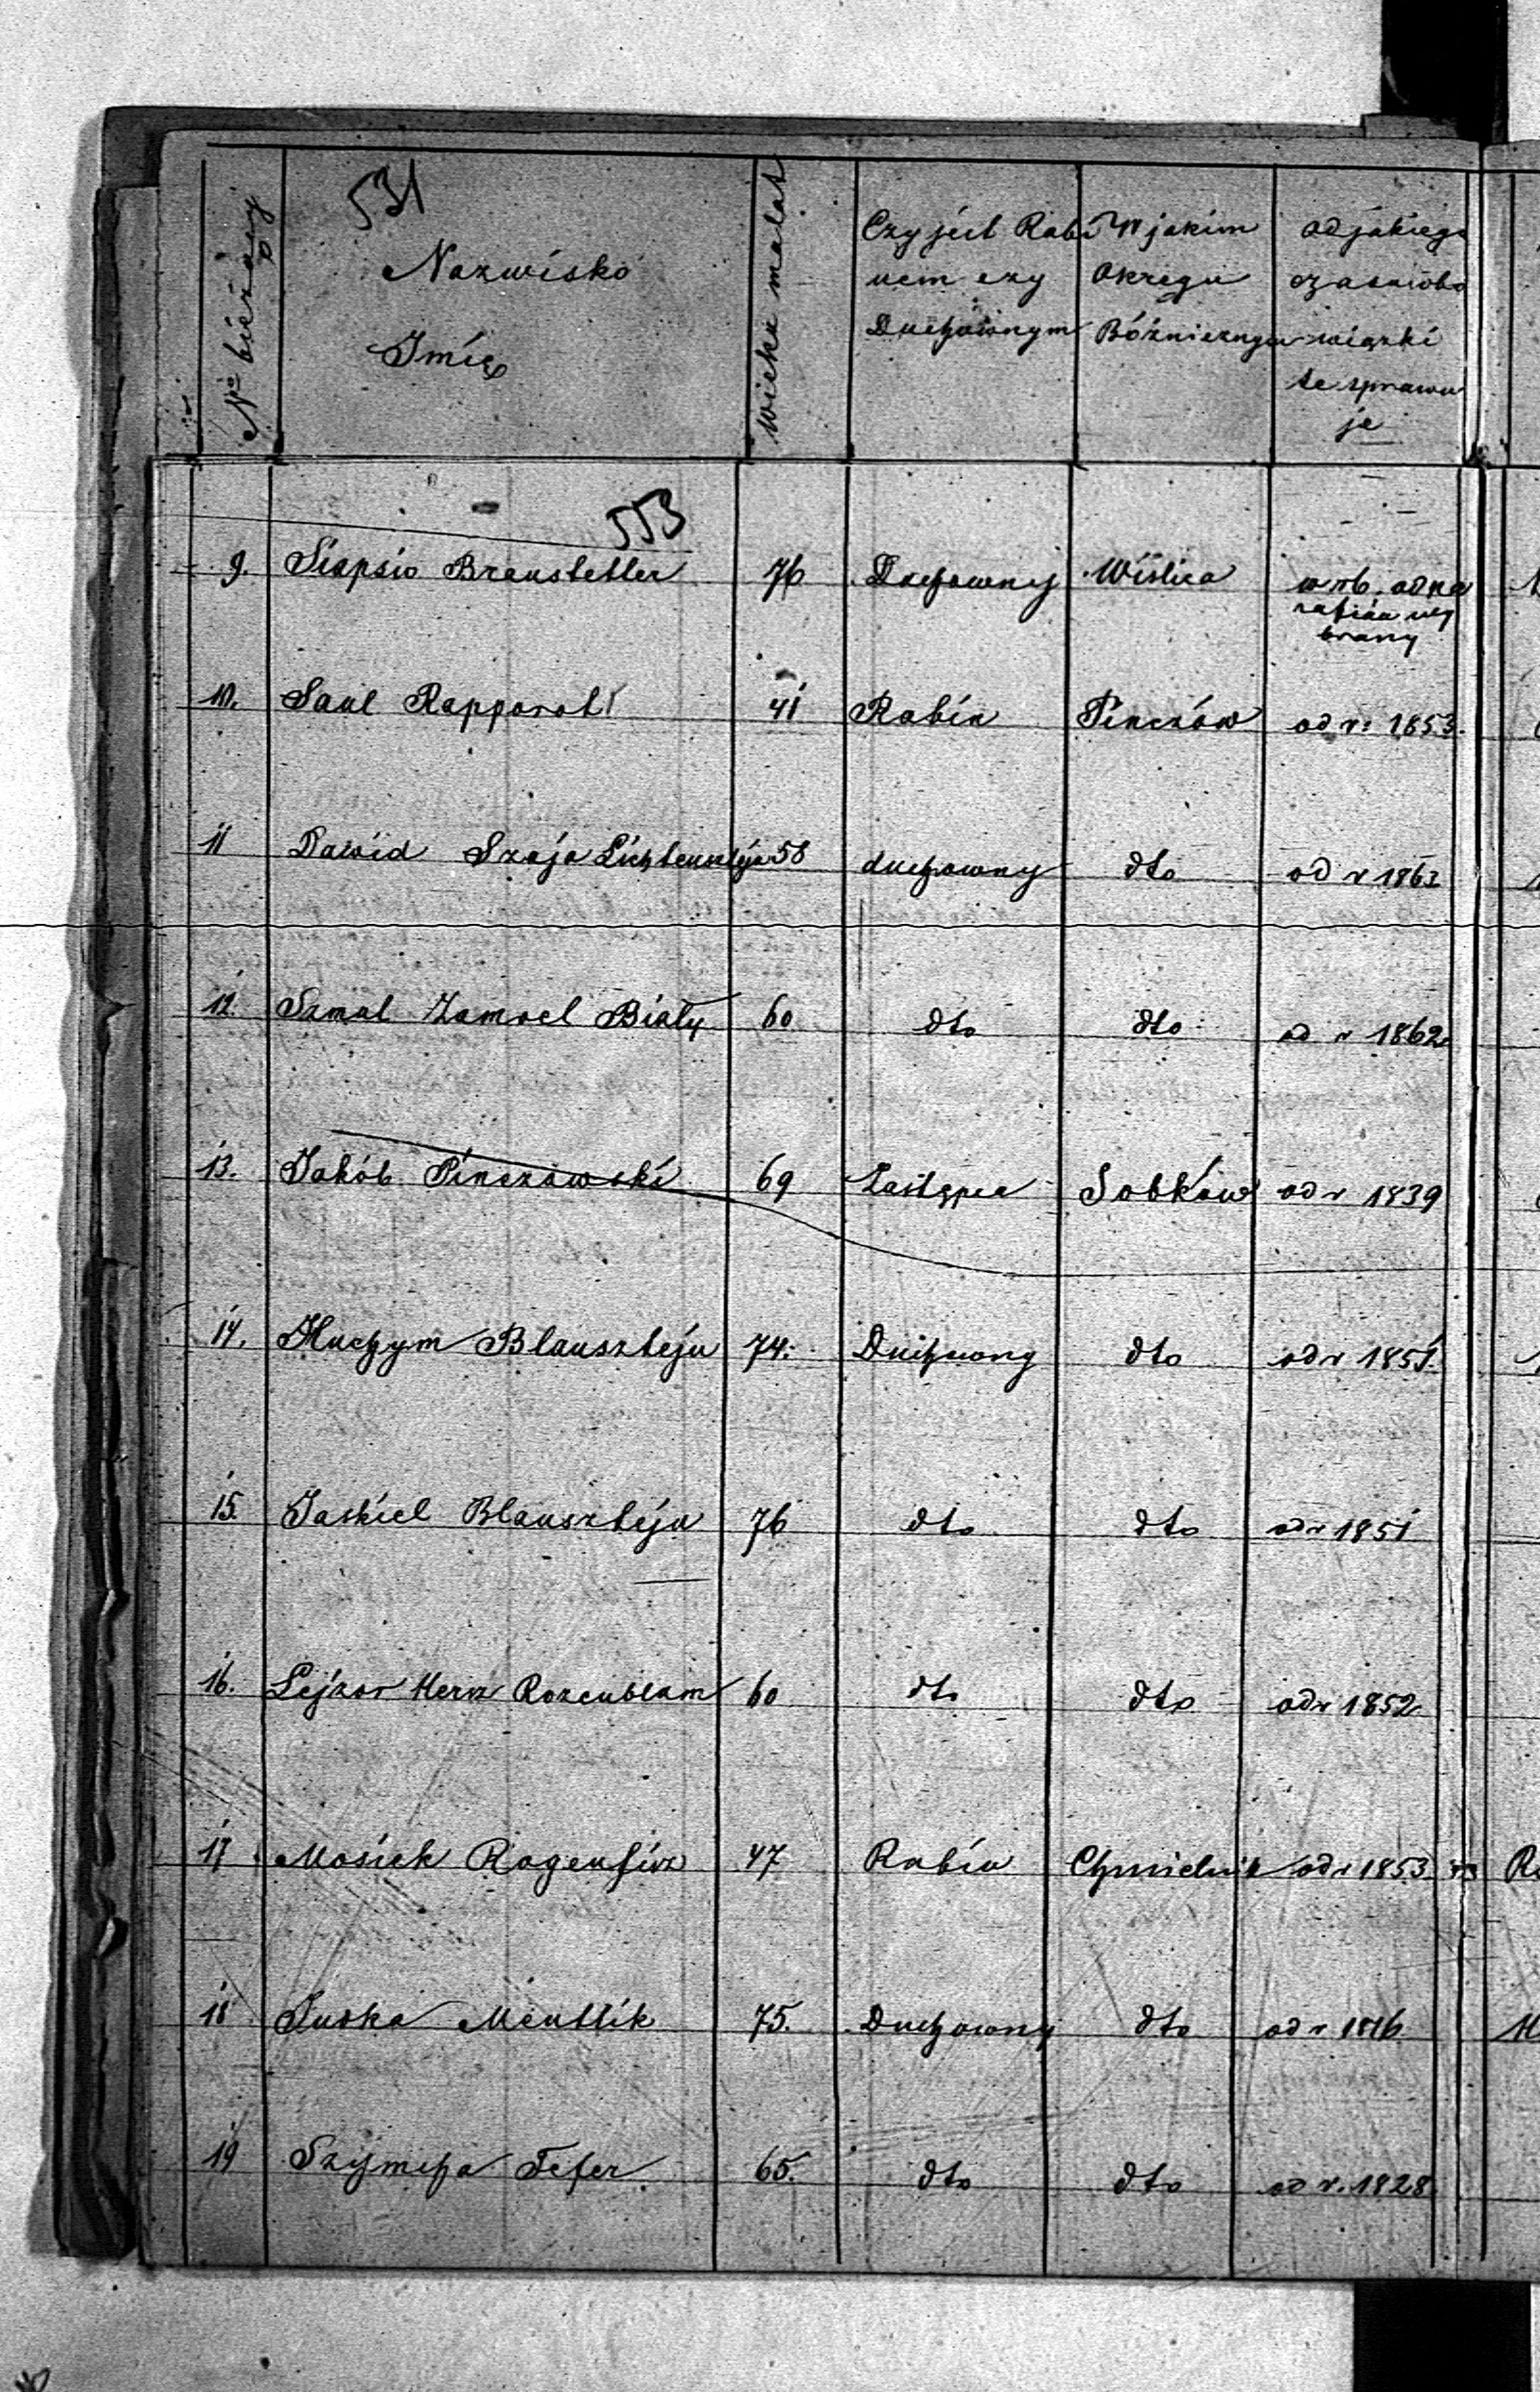 531
Nr bieżący
Nazwisko
Imię
Wieku ma lat
Czy jest Rabi
nem czy
Duchownym
W jakim
Okręgu
Bóżniczym
od jakiego
czasu obo
wiązki
te sprawu
je
553
9. Siapsio Braustetter 76 Duchowny Wiślica w r b. od pa
rafian wy
brany
10. Saul Rapporot 41 Rabin Pinczów od r: 1853.
11 Dawid Szaja Lichtensztejn 58 duchowny dto od r 1863
12. Szmul Zamvel Biały 60 dto dto od r 1862
13. Jakób Pinczowski 69 Zastępca Sobków od r 1839
14. Nuchym Blausztejn 74. Duchowny dto od r 1851.
15. Jaskiel Blausztejn 76 dto dto od r 1851
16. Lejzor Herz Rozenblam 60 dto dto od r 1852
17 Mosiek Rogensirz 47 Rabin Chmielnik od r 1853
18 Juska Menttik 75. Duchowny dto od r 1816
19 Szymcha Fefer 65. dto dto od r. 1828